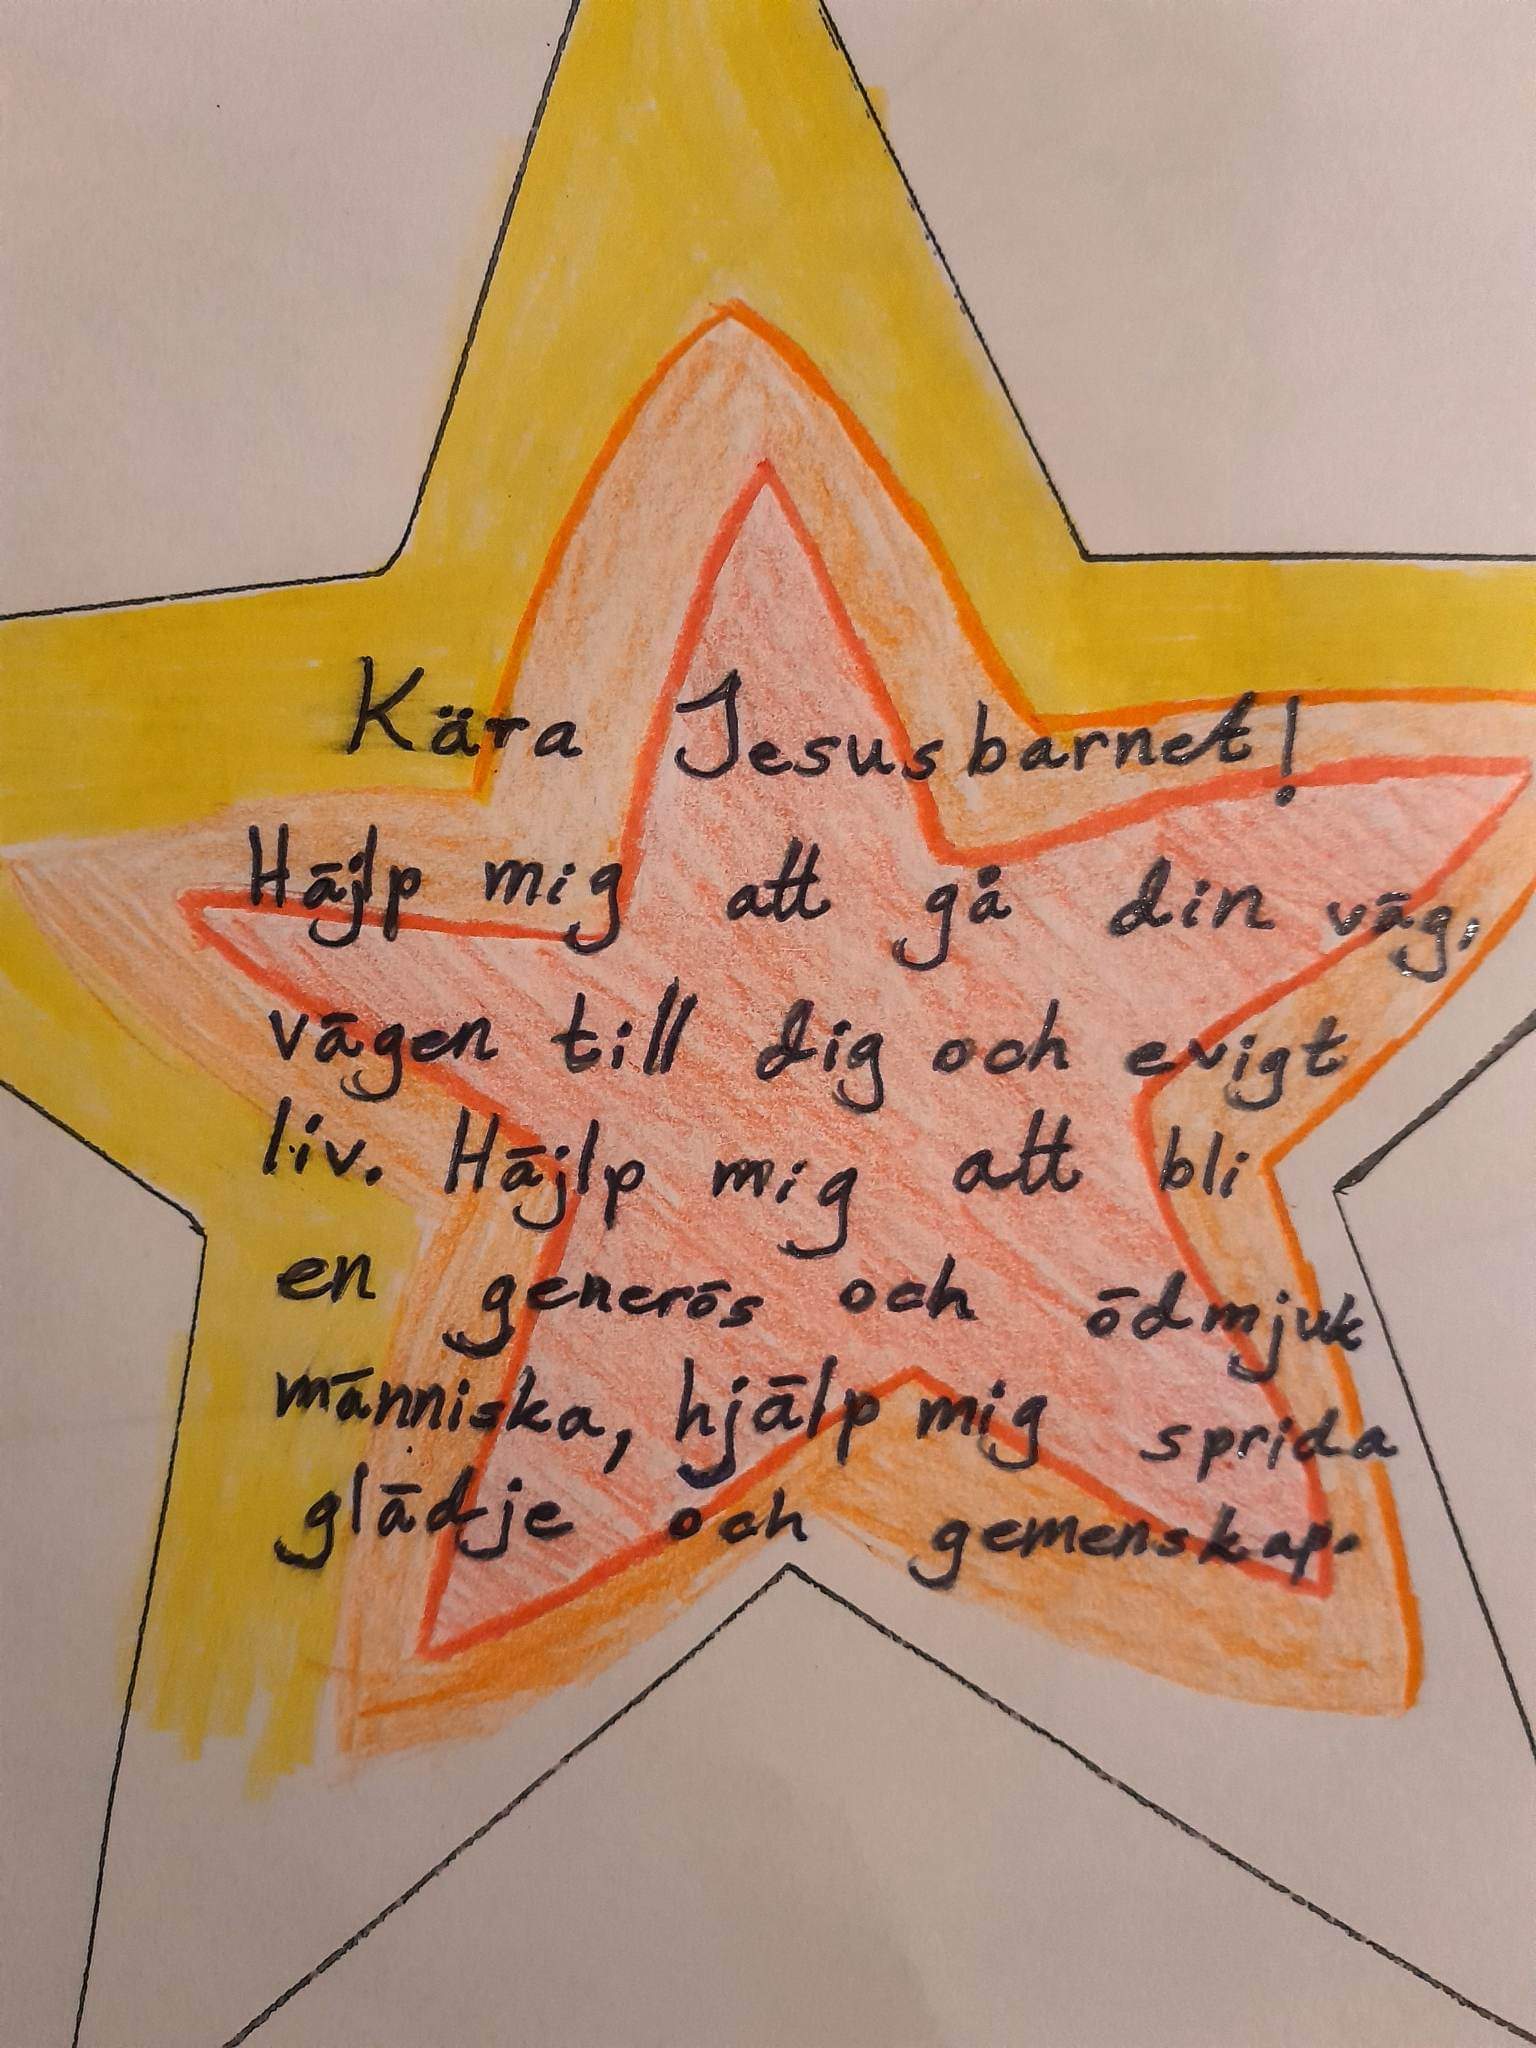 Kära Jesusbarnet!
Häjlp mig att gå din väg,
vägen till dig och evigt
liv. Häjlp mig att bli
en generös och ödmjuk
människa, hjälp mig sprida
glädje och gemenskap.